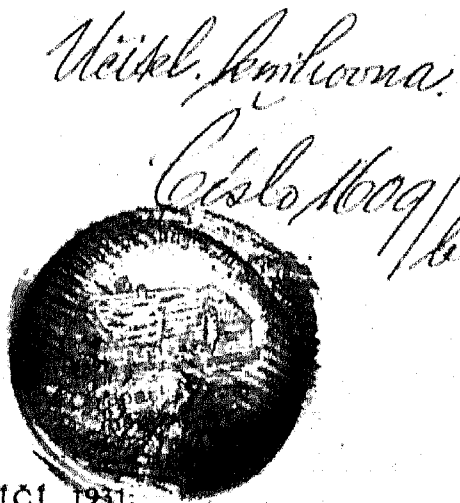 Učitel. knihovna.
Číslo 1609/
IČÍ 1931: